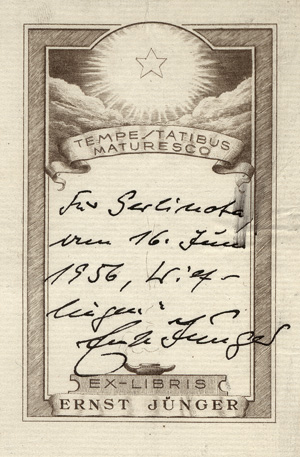 TEMPESTATIBUS
MATURESCO
Für
16. Juni
1956, Wilf-
lingen.
Ernst Jünger
EX-LIBRIS
ERNST JÜNGER